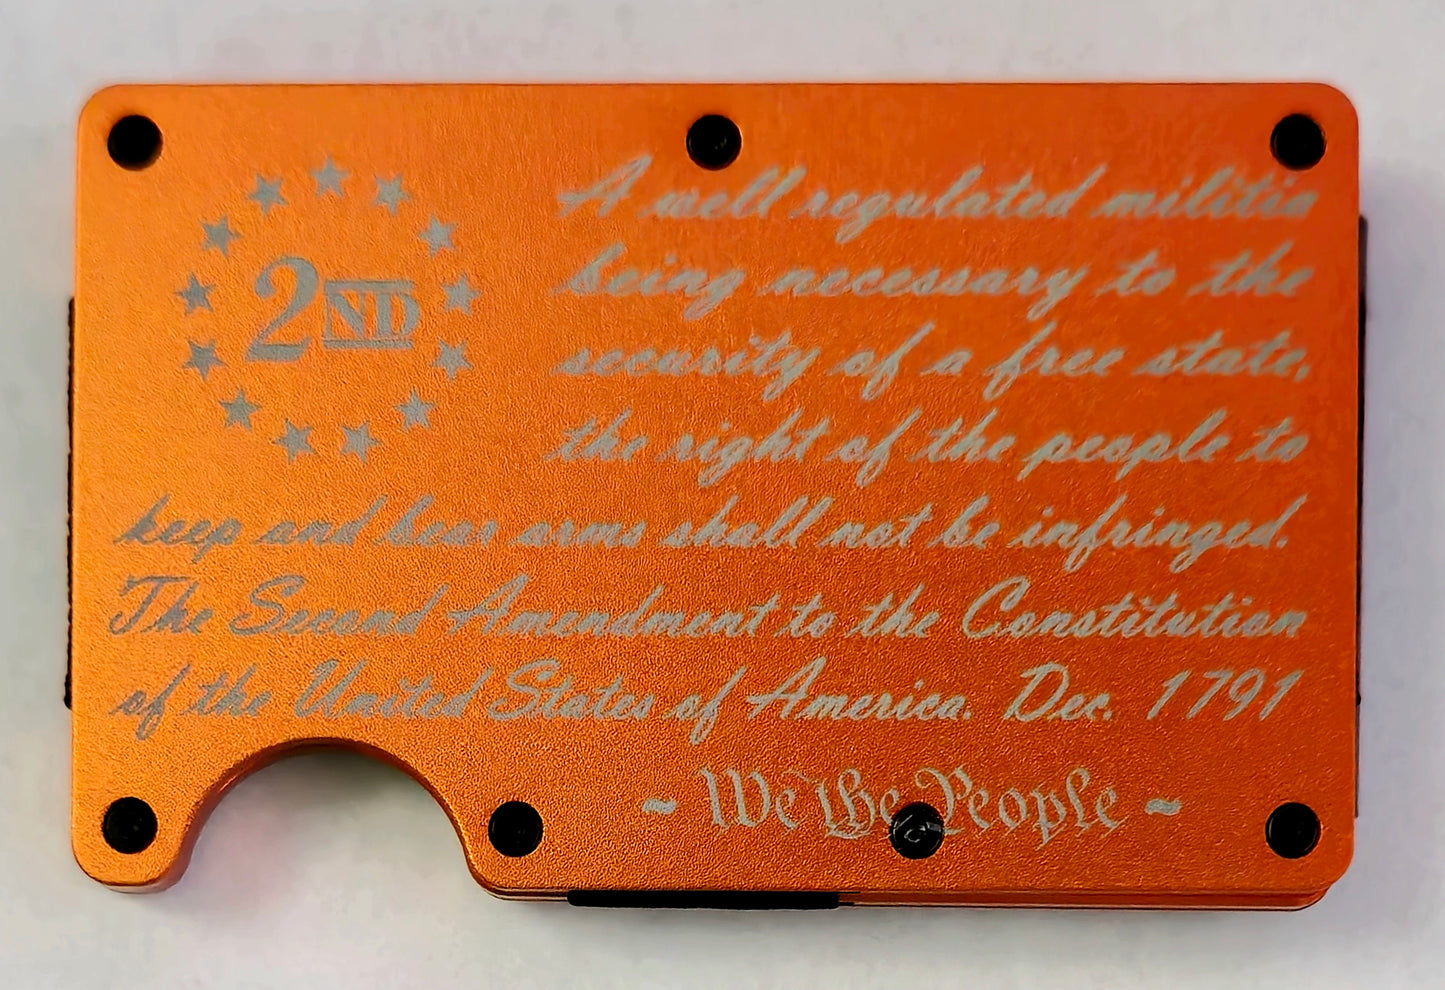 2ND
A well regulated militia
being necessary to the
security of a free state,
the right of the people to
keep and bear arms shall not be infringed.
The Second Amendment to the Constitution
of the United States of America. Dec. 1791
~ We the People ~